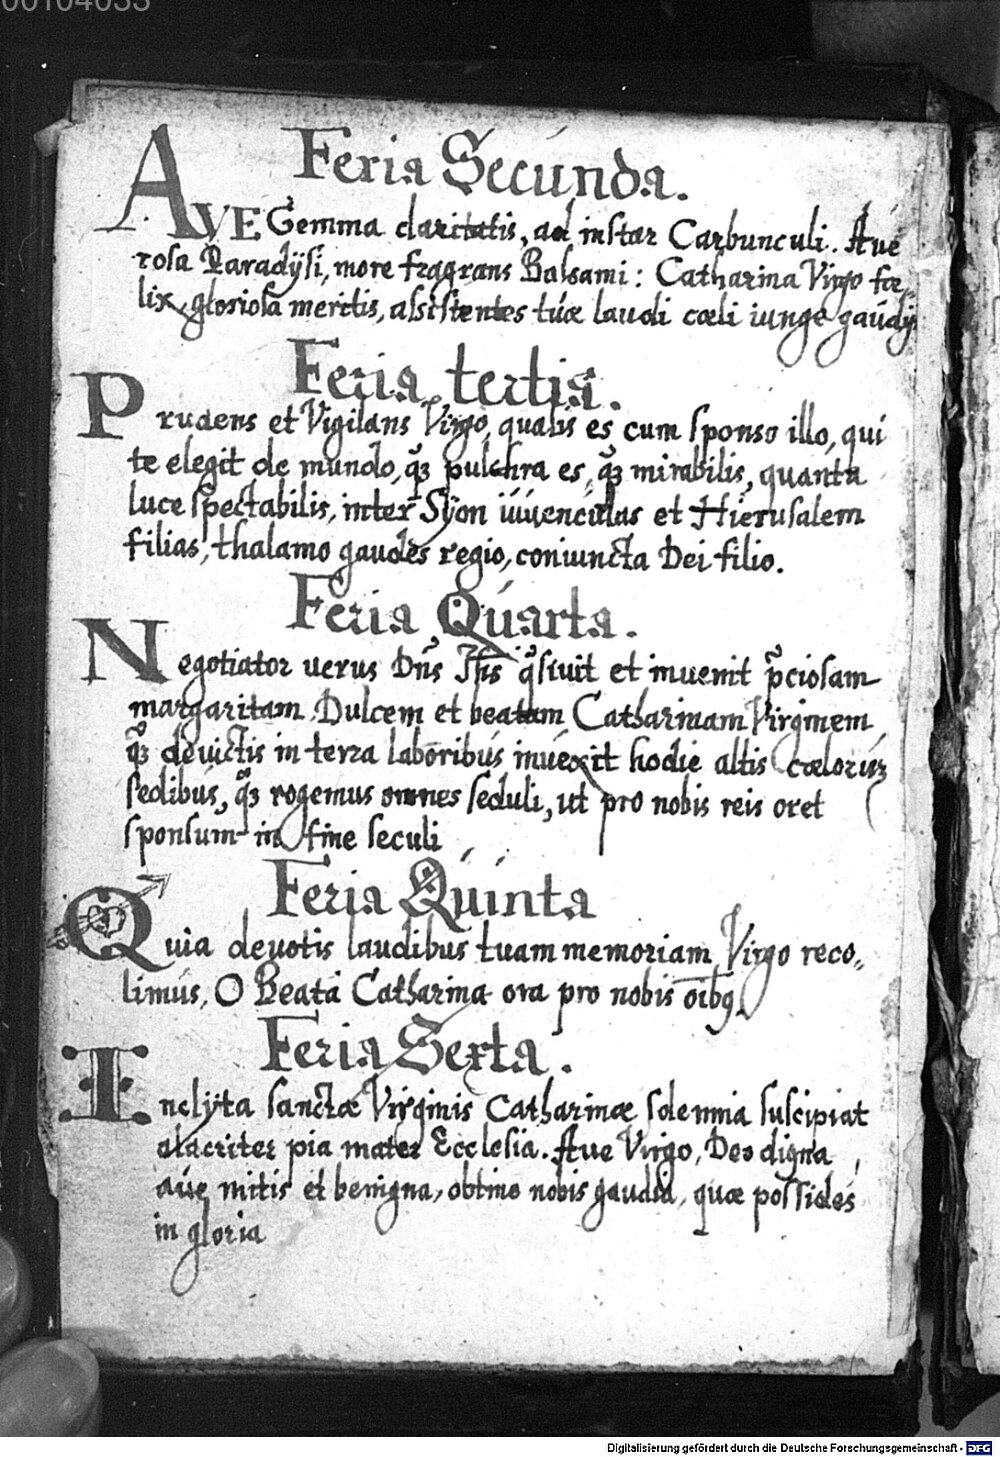 00104033
Feria Secúnda.
AVE Gemma claritatis, ad instar Carbunculi. Aúe
rosa Paradÿsi, more fragrans Balsami: Catharina Virgo fœ„
lix, gloriosa meritis, assistentes túæ laudi cœli iunge gaúdÿ
Feria tertia.
Prudens et Vigilans Virgo, qualis es cum sponso illo, qui
te elegit de mundo, qꝫ pulchra es, qꝫ mirabilis, quanta
luce spectabilis, inter Sÿon iúuencúlas et Hierusalem
filias, thalamo gaudes regio, coniuncta Dei filio.
Feria Qúarta.
Negotiator verus Dn̄s Jh̄s q̄siuit et inuenit p̄ciosam
margaritam, Dulcem et beatam Catharinam Virginem,
qꝫ deuictis in terra laboribús inúexit hodie altis cœlorúꝫ
sedibús, qꝫ rogemus omnes seduli, ut pro nobis reis oret
sponsum in fine seculi
Feria Qúinta
Quia deuotis laudibus tuam memoriam, Virgo reco„
limús, O Beata Catharina ora pro nobis oībꝫ
Feria Sexta.
Inclÿta sanctæ Virginis Catharinæ solemnia suscipiat
alacriter pia mater Ecclesia. Aue Virgo, Deo digna,
aúe mitis et benigna, obtine nobis gaudia, quæ possides
in gloria
Digitalisierung gefördert durch die Deutsche Forschungsgemeinschaft - DFG